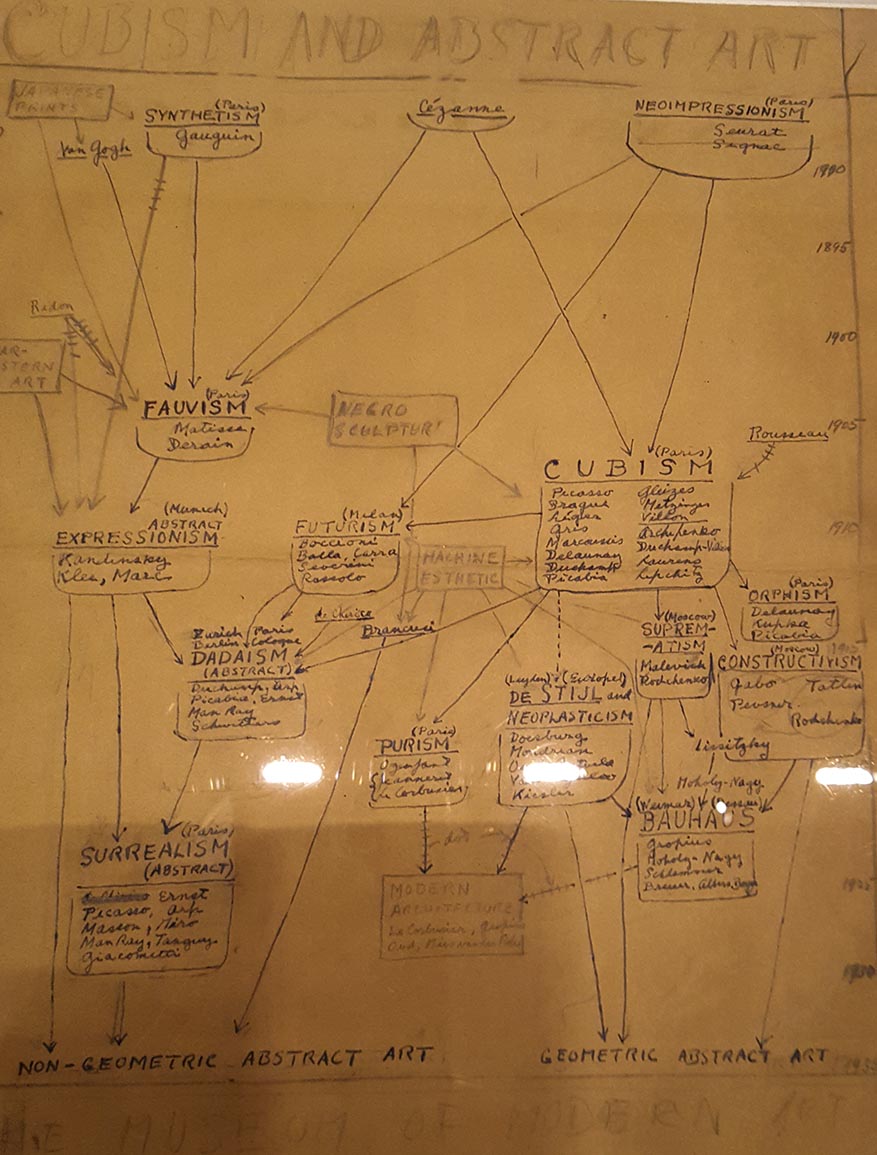 CUBISM AND ABSTRACT ART
JAPANESE
PRINTS
(Paris)
SYNTHETISM
Gauguin
Van Gogh
Cézanne
(Paris)
NEOIMPRESSIONISM
Seurat
Signac
1890
1895
1900
1905
1910
1915
1925
1930
1935
Redon
AR-
STERN
ART
(Paris)
FAUVISM
Matisse,
Derain
NEGRO
SCULPTUR
Rousseau
(Paris)
CUBISM
Picasso Gleizes
Braque Metzinger
Léger Villon
Gris Archipenko
Marcoussis Duchamp-Villon
Delaunay Laurens
Duchamp Lipchitz
Picabia
(Munich)
ABSTRACT
EXPRESSIONISM
Kandinsky
Klee, Marc
(Milan)
FUTURISM
Boccioni
Balla, Carra
Severini
Rossolo
MACHINE
ESTHETIC
(Paris)
ORPHISM
Delaunay
Kupka
Picabia
de Chirico
Brancusi
Zurich Paris
Berlin Cologne
DADAISM
(ABSTRACT)
Duchamp, Arp
Picabia, Ernst
Man Ray
Schwitters
(Moscow)
SUPREM-
-ATISM
Malevich
Rodchenko
(Moscow)
CONSTRUCTIVISM
Gabo Tatlin
Pevsner
Rodchenko
(Leyden) (Europe)
DE STIJL and
NEOPLASTICISM
Doesburg
Mondrian
Kiesler
(Paris)
PURISM
Ozenfant
Jeanneret
Le Corbusier
Lissitzky
Moholy-Nagy
(Weimar) (Dessau)
BAUHAUS
Gropius
Moholy-Nagy
Schlemmer
Breuer, Albers, Bayer
(Paris)
SURREALISM
(ABSTRACT)
Ernst
Picasso, Arp
Masson, Miro
Man Ray, Tanguy
Giacometti
MODERN
ARCHITECTURE
Le Corbusier, Gropius
Oud, Mies van der Rohe
NON-GEOMETRIC ABSTRACT ART
GEOMETRIC ABSTRACT ART
HE MUSEUM OF MODERN ART